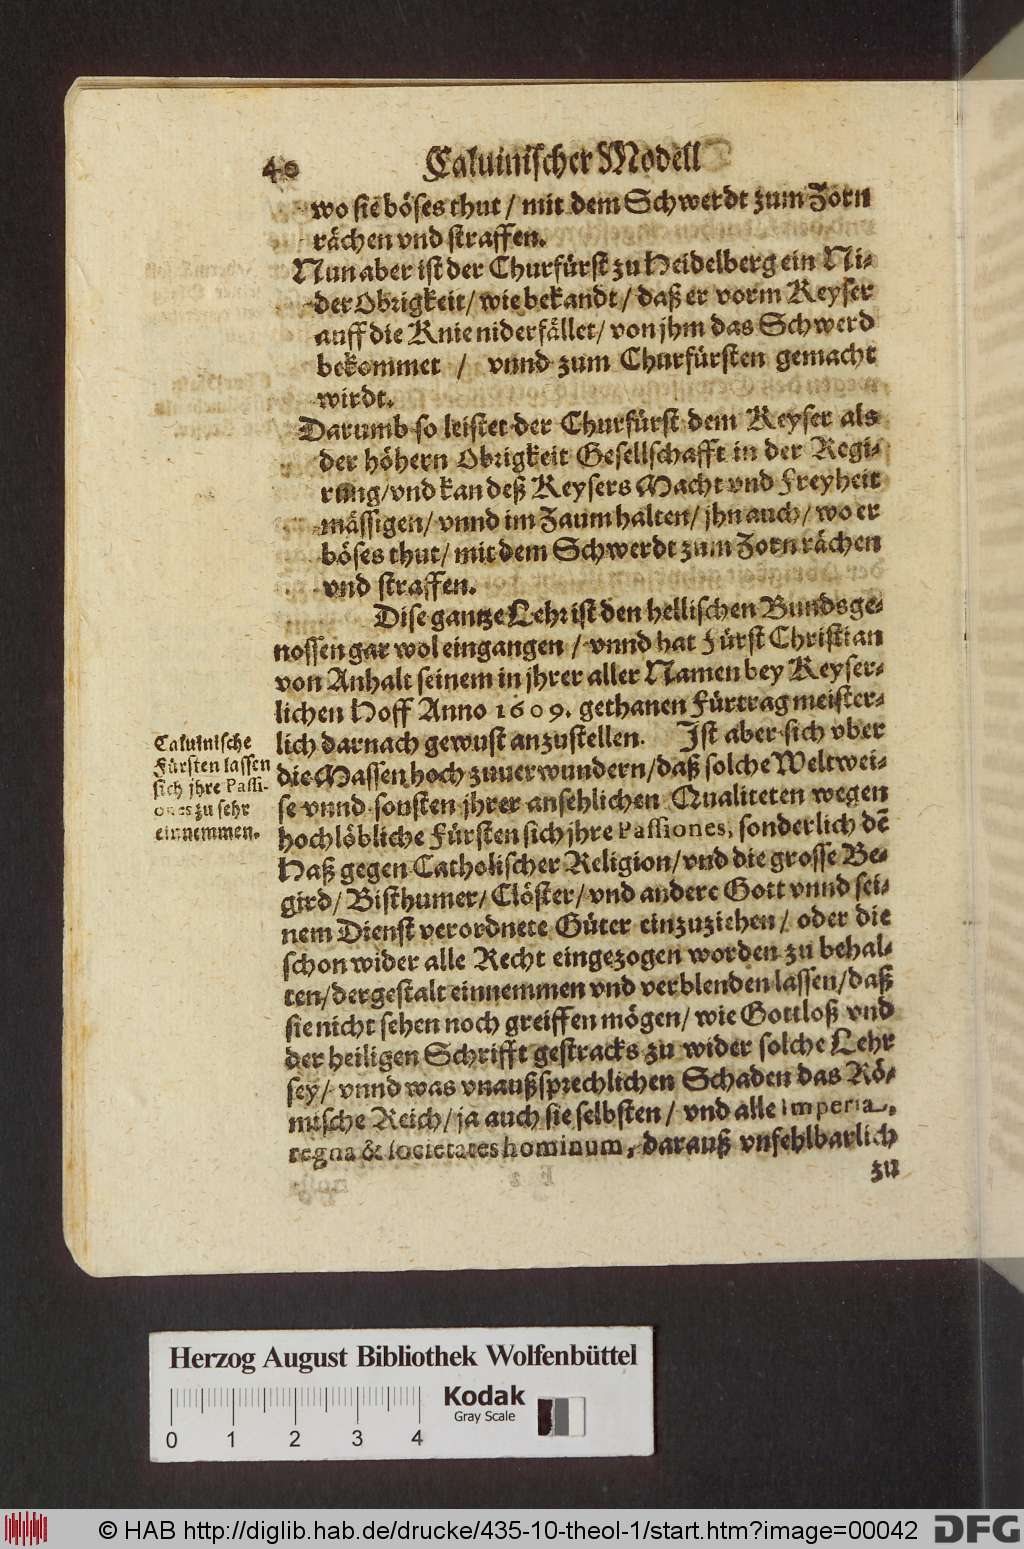 40
Caluinischer Modell
wo sie böses thut / mit dem Schwerdt zum Zorn
rächen vnd straffen.
Nun aber ist der Churfürst zu Heidelberg ein Ni-
der Obrigkeit / wie bekandt / daß er vorm Keyser
auff die Knie niderfället / von jhm das Schwerd
bekommet / vnnd zum Churfürsten gemacht
wirdt.
Darumb so leistet der Churfürst dem Keyser als
der höhern Obrigkeit Gesellschafft in der Regi-
rung / vnd kan deß Keysers Macht vnd Freyheit
mässigen / vnnd im Zaum halten / jhn auch / wo er
böses thut / mit dem Schwerdt zum Zorn rächen
vnd straffen.
Dise gantze Lehr ist den hellischen Bundsge-
nossen gar wol eingangen / vnnd hat Fürst Christian
von Anhalt seinem in jhrer aller Namen bey Keyser-
lichen Hoff Anno 1609. gethanen Fürtrag meister-
lich darnach gewust anzustellen. Ist aber sich vber
die Massen hoch zuuerwundern / daß solche Weltwei-
se vnnd sonsten jhrer ansehlichen Qualiteten wegen
hochlöbliche Fürsten sich jhre Passiones, sonderlich dē
Haß gegen Catholischer Religion / vnd die grosse Be-
gird / Bisthumer / Clöster / vnd andere Gott vnnd sei-
nem Dienst verordnete Güter einzuziehen / oder die
schon wider alle Recht eingezogen worden zu behal-
ten / dergestalt einnemmen vnd verblenden lassen / daß
sie nicht sehen noch greiffen mögen / wie Gottloß vnd
der heiligen Schrifft gestracks zu wider solche Lehr
sey / vnnd was vnaußsprechlichen Schaden das Rö-
mische Reich / ja auch sie selbsten / vnd alle Imperia,
regna & societates hominum, darauß vnfehlbarlich
zu
Caluinische
Fürsten lassen
sich jhre Passi-
ones zu sehr
einnemmen.
Herzog August Bibliothek Wolfenbüttel
Kodak
Gray Scale
0 1 2 3 4
© HAB http://diglib.hab.de/drucke/435-10-theol-1/start.htm?image=00042
DFG